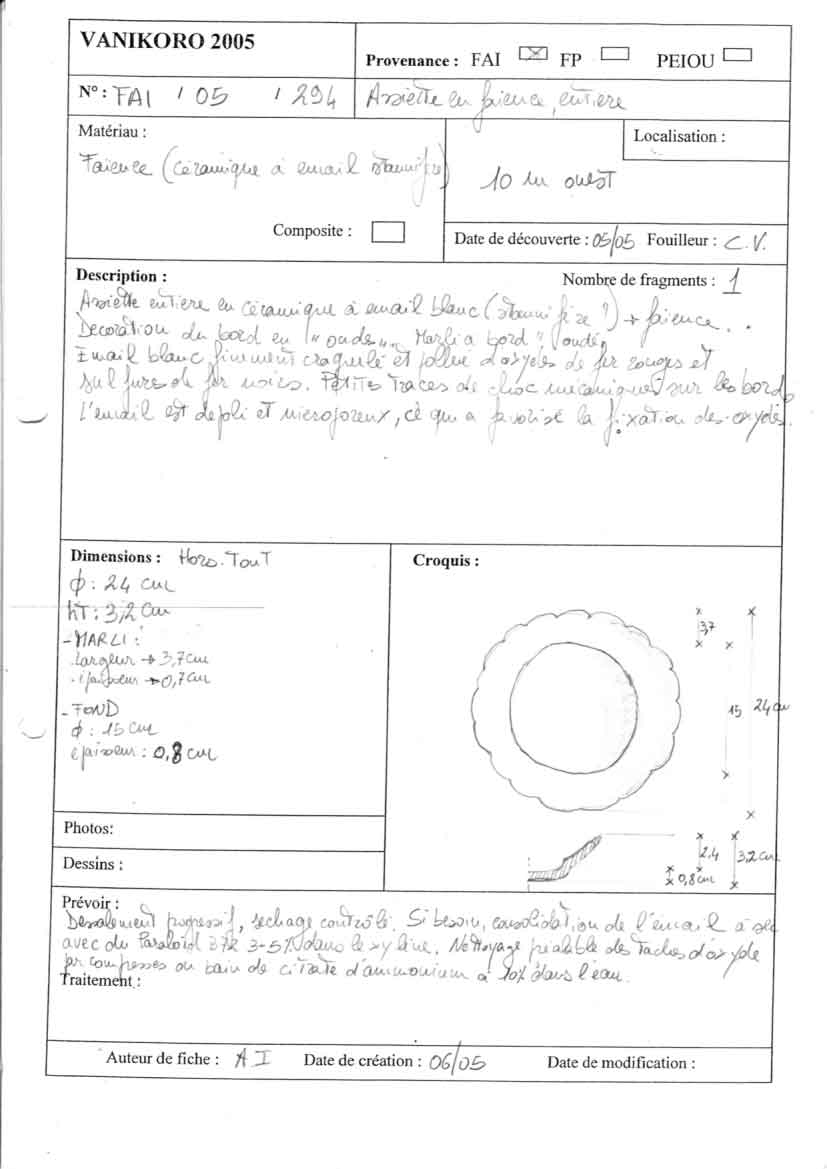 VANIKORO 2005
Provenance : FAI ☒ FP ☐ PEIOU ☐
N° : FAI / 05 / 294
Assiette en faience, entiere
Matériau :
Faience (céramique à email stannifère)
Composite : ☐
Localisation :
10 m ouest
Date de découverte : 05/05 Fouilleur : C.V.
Description :
Nombre de fragments : 1
Assiette entiere en céramique à email blanc (stannifère ?) → faience.
Decoration du bord en "onde" Marli a bord "ondé"
Email blanc finement craquelé et pollué d'oxydes de fer rouges et
sulfures de fer noirs. Petites traces de choc mécaniques sur les bords
L'email est depoli et microporeux, ce qui a favorisé la fixation des oxydes.
Dimensions : Hors-Tout
ϕ : 24 cm
hT : 3,2 cm
- MARLI :
. largeur → 3,7 cm
. épaisseur → 0,7 cm
- FOND
ϕ : 15 cm
épaisseur : 0,8 cm
Croquis :
3,7
15
24 cm
2,4
3,2 cm
0,8 cm
Photos:
Dessins :
Prévoir :
Dessalement progressif, sechage contrôlé. Si besoin, consolidation de l'email à sec
avec du Paraloid B72 3-5% dans le xylène. Nettoyage préalable des taches d'oxyde
par compresses ou bain de citrate d'ammonium à 10% dans l'eau.
Traitement :
Auteur de fiche : A I Date de création : 06/05 Date de modification :